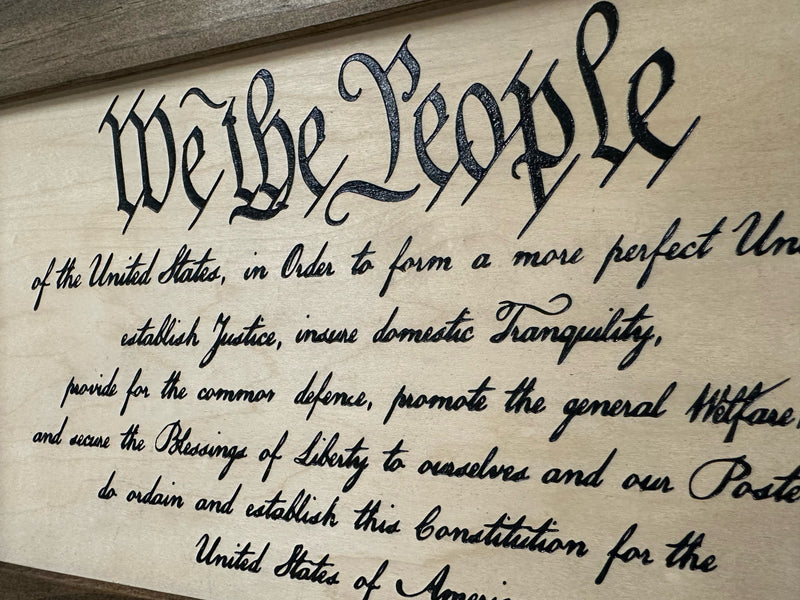 We the People
of the United States, in Order to form a more perfect Un
establish Justice, insure domestic Tranquility,
provide for the common defence, promote the general Welfare,
and secure the Blessings of Liberty to ourselves and our Poste
do ordain and establish this Constitution for the
United States of Americ